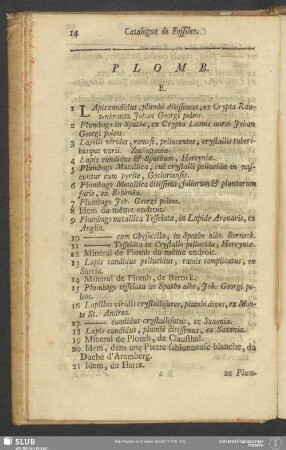 14 Catalogue de Fossiles.
PLOMB.
E.
1 LApis candidus, plumbi ditissimus, ex Crypta Rau-
tenkrantz Johan Georgi poleos.
2 Plumbago in Spatho, ex Crypta Leonis aurei Johan
Georgi poleos.
3 Lapilli virides, ramosi, pellucentes, crystallis
que variis.
4 Lapis candidus & Spathum, Hercyniæ.
5 Plumbago Metallica, cui crystalli pellucida in nas-
cuntur cum pyrite, Goslariensis.
6 Plumbago Metallica ditissima, foliorum & plantarum
furis, ex Bohemia.
7 Plumbago Joh. Georgi poleos.
8 Idem du même endroit.
9 Plumbago metallica Tesselata, in Lapide Arenario, ex
Anglia.
10 —— cum Chysocolla, in Spatho albo. Berneck.
11 —— Tesselata in Crystallo pellucida, Hercyniæ.
12 Mineral de Plomb du même endroit.
13 Lapis candidus pellucidus, ramis complicatus, ex
Suecia.
14 Mineral de Plomb, de Berneck.
15 Plumbago tesselata in Spatho albo, Joh. Georgi po-
leos.
16 Lapillus viridis crystallisatus, plumbi dives, ex Mon-
te St. Andrea.
17 —— candidus crystallisatus, ex Saxonia.
18 Lapis candidus, plumbi ditissimus, ex Saxonia.
19 Mineral de Plomb, de Clausthal.
20 Idem, dans une Pierre sablonneuse blanche, du
Duché d'Aremberg.
21 Idem, du Hartz.
22 Plum-
SLUB